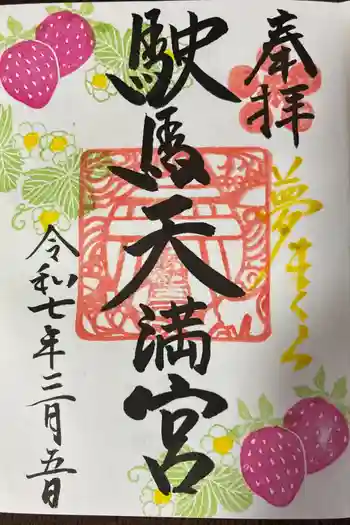 奉拝
夢まくら
駛馬天満宮
令和七年三月五日